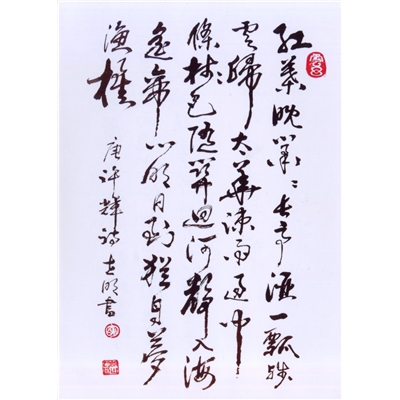 紅葉晚蕭蕭長亭酒一瓢殘
雲歸太華疎雨過中
條樹色隨關迥河聲入海
遙帝鄉明日到猶自夢
漁樵
唐許輝詩 明書